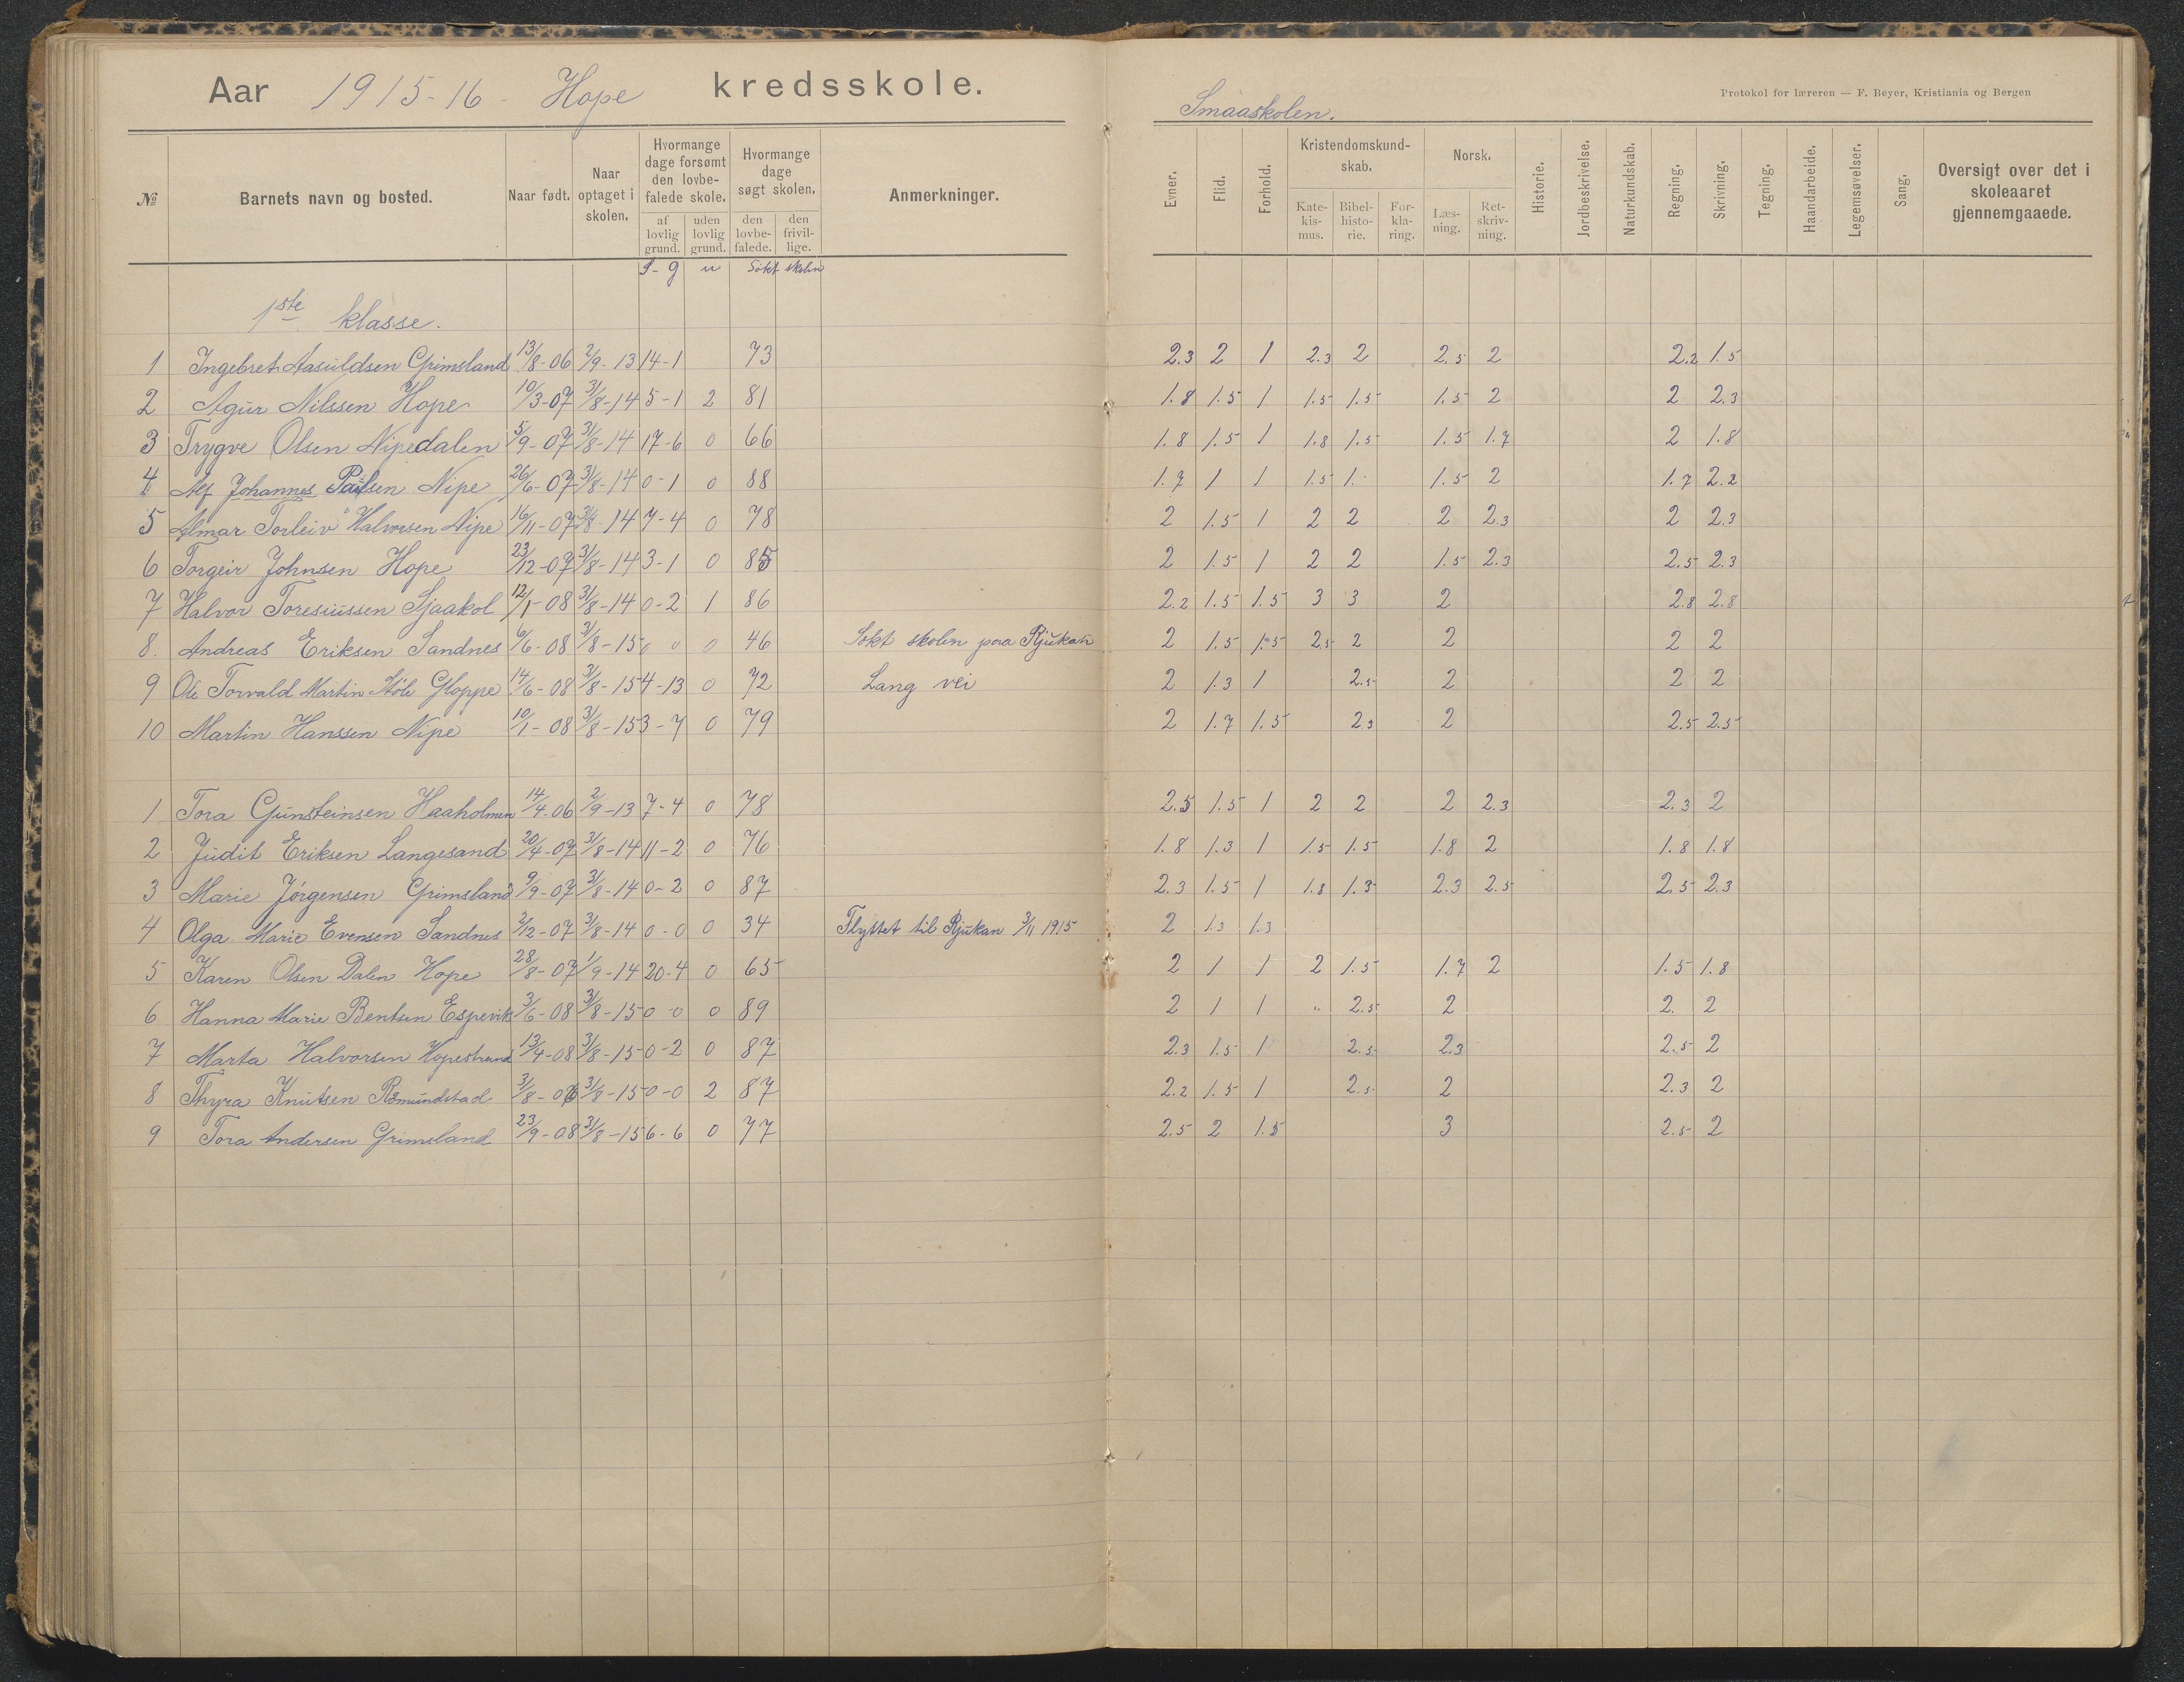 Aar 1915-16 - Hope kredsskole.
Smaaskolen.
Protokol for læreren — F. Beyer, Kristiania og Bergen
№ Barnets navn og bosted. Naar født. Naar optaget i skolen. Hvormange dage forsømt den lovbefalede skole. af lovlig grund. uden lovlig grund. Hvormange dage søgt skolen. den lovbefalede. den frivillige. Anmerkninger. Evner. Flid. Forhold. Kristendomskundskab. Katekismus. Bibelhistorie. Forklaring. Norsk. Læsning. Retskrivning. Historie. Jordbeskrivelse. Naturkundskab. Regning. Skrivning. Tegning. Haandarbeide. Legemsøvelser. Sang. Oversigt over det i skoleaaret gjennemgaaede.
S - g u Søkt skolen
1ste klasse.
1 Ingebret Aasuldsen Grimsland 13/8-06 2/9-13 14-1 73 2.3 2 1 2.3 2 2.5 2 2.2 1.5
2 Agur Nilssen Hope 10/3-07 31/8-14 5-1 2 81 1.8 1.5 1 1.5 1.5 1.5 2 2 2.3
3 Trygve Olsen Nipedalen 5/9-07 31/8-14 17-6 0 66 1.8 1.5 1 1.8 1.5 1.5 1.7 2 1.8
4 Alf Johannes Paulsen Nipe 26/6-07 31/8-14 0-1 0 88 1.7 1 1 1.5 1. 1.5 2 1.7 2.2
5 Almar Torleiv Halvorsen Nipe 16/11-07 31/8-14 7-4 0 78 2 1.5 1 2 2 2 2.3 2 2.3
6 Torgeir Johnsen Hope 23/12-07 31/8-14 3-1 0 85 2 1.5 1 2 2 1.5 2.3 2.5 2.3
7 Halvor Toresiussen Sjaakol 12/1-08 31/8-14 0-2 1 86 2.2 1.5 1.5 3 3 2 2.8 2.8
8. Andreas Eriksen Sandnes 6/6-08 31/8-15 0 0 0 46 Søkt skolen paa Rjukan 2 1.5 1.5 2.5 2 2 2 2
9 Ole Torvald Martin Støle Gloppe 14/6-08 31/8-15 4-13 0 72 Lang vei 2 1.3 1 2.5 2 2 2
10 Martin Hanssen Nipe 10/1-08 31/8-15 3-7 0 79 2 1.7 1.5 2.3 2 2.5 2.5
1 Tora Gunsteinsen Haaholmen 14/4-06 2/9-13 7-4 0 78 2.5 1.5 1 2 2 2 2.3 2.3 2
2 Judit Eriksen Langesand 20/4-07 31/8-14 11-2 0 76 1.8 1.3 1 1.5 1.5 1.8 2 1.8 1.8
3 Marie Jørgensen Grimsland 9/9-07 31/8-14 0-2 0 87 2.3 1.5 1 1.8 1.3 2.3 2.5 2.5 2.3
4 Olga Marie Evensen Sandnes 2/12-07 31/8-14 0-0 0 34 Flyttet til Rjukan 3/11 1915 2 1.3 1.3
5 Karen Olsen Dalen Hope 28/8-07 1/9-14 20-4 0 65 2 1 1 2 1.5 1.7 2 1.5 1.8
6 Hanna Marie Bentsen Espevik 3/6-08 31/8-15 0-0 0 89 2 1 1 " 2.5 2 2. 2
7 Marta Halvorsen Hopestrand 13/4-08 31/8-15 0-2 0 87 2.3 1.5 1 2.5 2.3 2.5 2
8 Thyra Knutsen Romundstad 31/8-15 0-0 2 87 2.2 1.5 1 2.5 2 2.3 2
9 Tora Andersen Grimsland 23/9-08 31/8-15 6-6 0 77 2.5 2 1.5 3 2.5 2